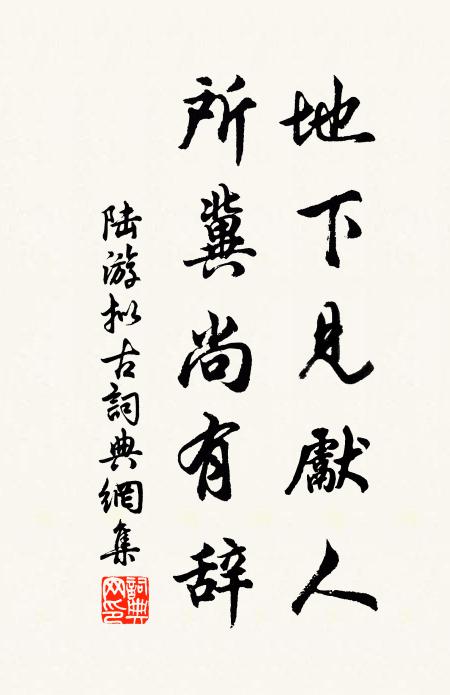 地下見獻人
所冀尚有辞
陆游拟古詞典網集
詞典
网印